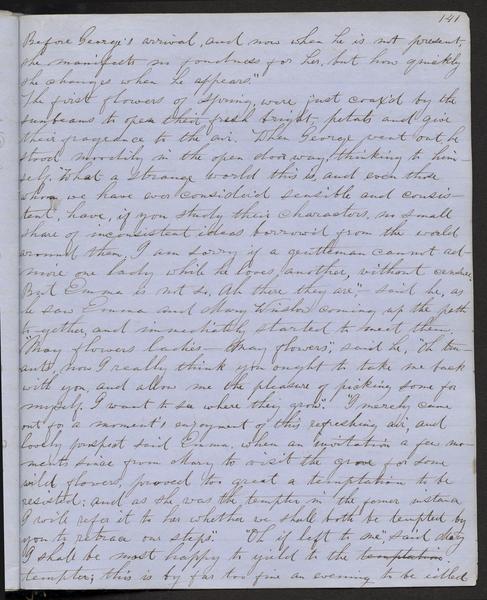 141
Before George's arrival, and now when he is not present,
she manifests no fondness for her, but how quickly
she changes when he appears."
The first flowers of Spring, were just coax'd by the
sunbeams to open their fresh bright petals and give
their fragrance to the air. When George went out, he
stood moodily in the open doorway, thinking to him-
self, "What a strange world this is, and even those
whom we have ever considerd sensible and consis-
tent, have, if you study their characters, no small
share of inconsistent ideas borrow'd from the world
around them, I am sorry if a gentleman cannot ad-
more one lady while he loves another, without censure.
But Emma is not so. Ah there they are", said he, as
he saw Emma and Mary Winslow coming up the path
to-gether, and immediately started to meet them.
"May flowers ladies— May flowers", said he, "Oh
now I really think you ought to take me back
with you, and allow me the pleasure of picking some for
myself, I want to see where they grow." "I merely came
out for a moment's enjoyment of this refreshing air, and
lovely prospect said Emma, when an invitation a few mo-
ments since from Mary to visit the grove for some
wild flowers, proved too great a temptation to be
resisted; and as she was the tempter in the former instance
I will refer it to her whether we shall both be tempted by
you to retrace our steps." "Oh if left to me, said Mary
I shall be most happy to yield to the temptation.
tempter; this is by far too fine an evening to be